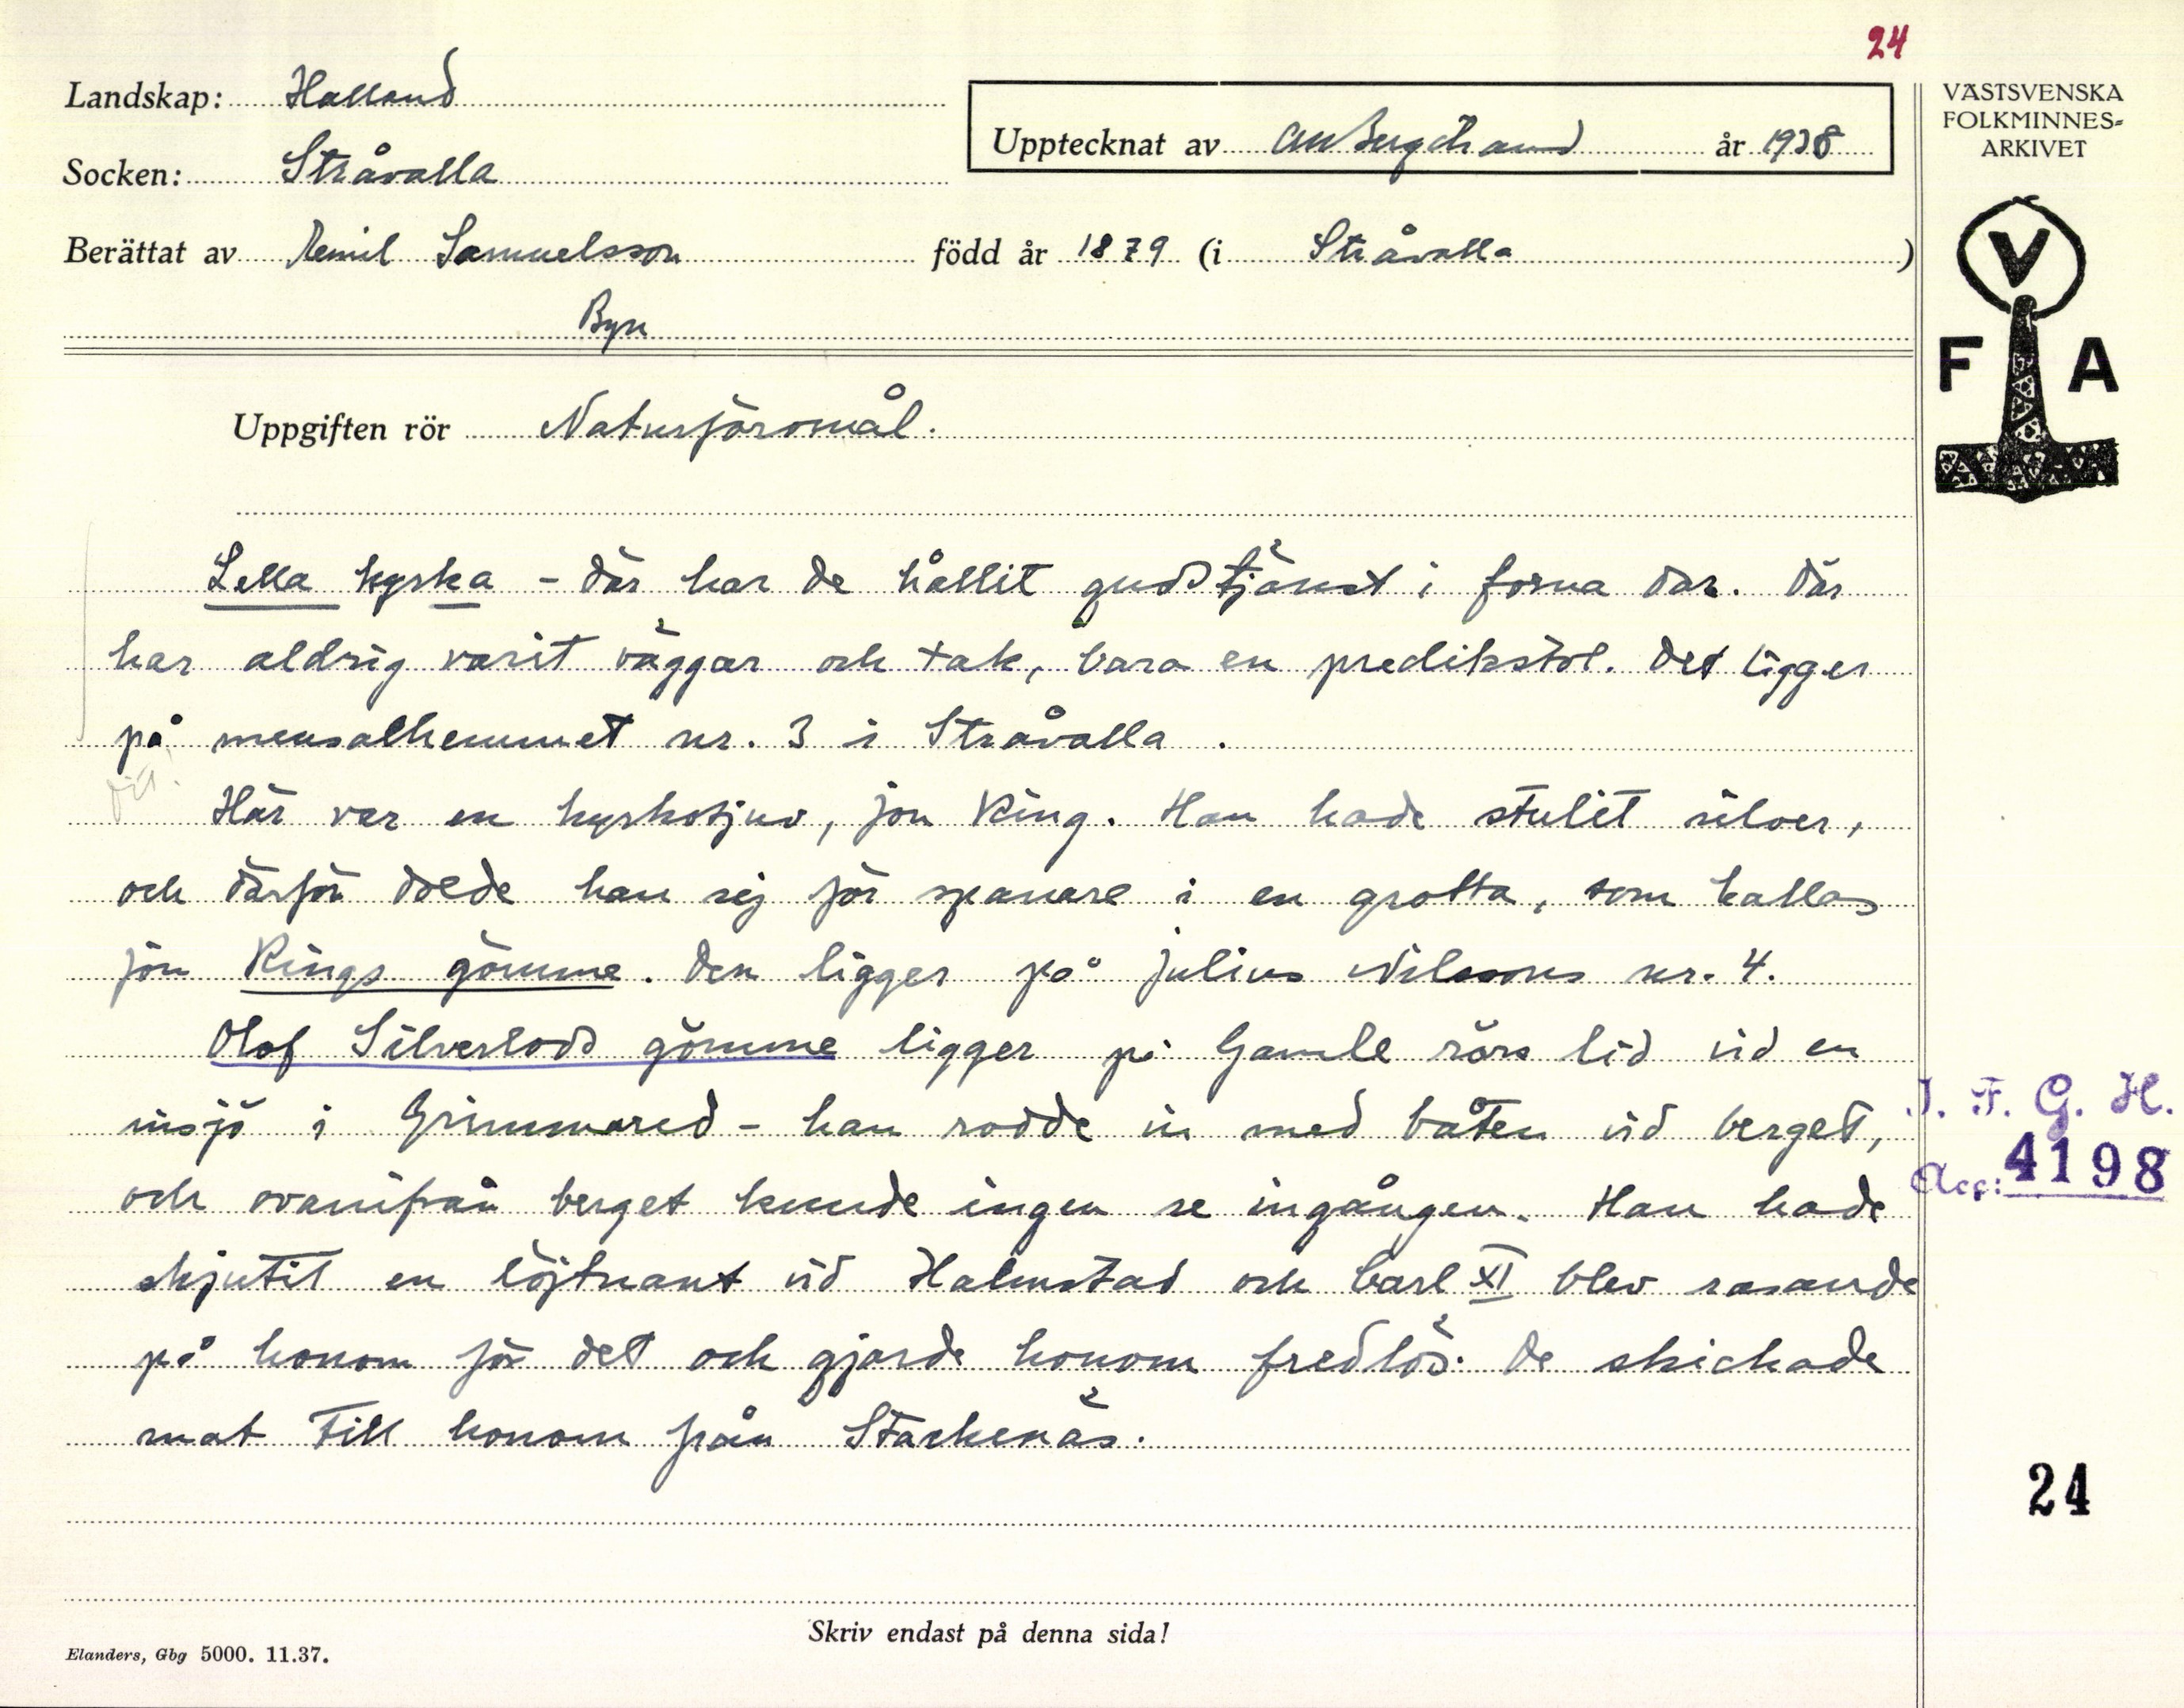 24
Landskap: Halland
VÄSTSVENSKA
FOLKMINNES-
ARKIVET
Upptecknat av år 1938
Socken: Stråvalla
Berättat av Emil Samuelsson född år 1879 (i Stråvalla)
Byn
V
F A
Uppgiften rör Naturföromål.
Lella kyrka - där har de hållit gudstjänst i forna dar. Där
har aldrig varit väggar och tak, bara en predikstol. Det ligger
på mensalhemmet nr. 3 i Stråvalla.
Här var en kyrkotjuv, Jon Ring. Han hade stulit silver,
och därför dolde han sig för spanare i en grotta, som kallas
Jon Rings gömme. Den ligger på Julius Nilssons nr. 4.
Olof Silverlodd gömme ligger på Gamle rörs lid vid en
insjö i Grimmared - han rodde in med båten vid berget,
och ovanifrån berget kunde ingen se ingången. Han hade
skjutit en löjtnant vid Halmstad och Carl XI blev rasande
på honom för det och gjorde honom fredlös. De skickade
mat till honom från Stackenäs.
I. F. G. H.
Acc: 4198
24
Skriv endast på denna sida!
Elanders, Gbg 5000. 11.37.